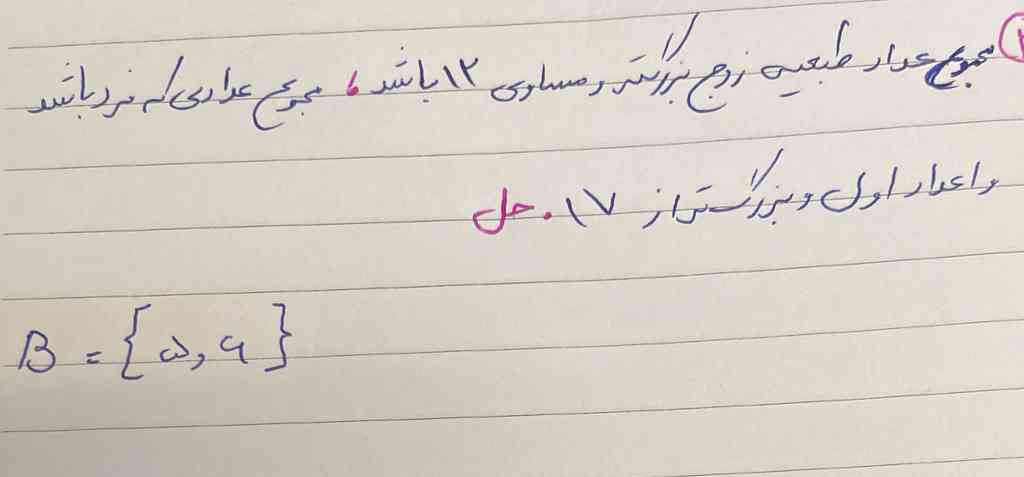 مجموع عداد طبیعی زوج بزرگتر و مساوی ۱۲ باشد، مجموع عدادی که فرد باشد
و اعداد اول و بزرگ تر از ۱۷. حل
B = {۵, ۹}